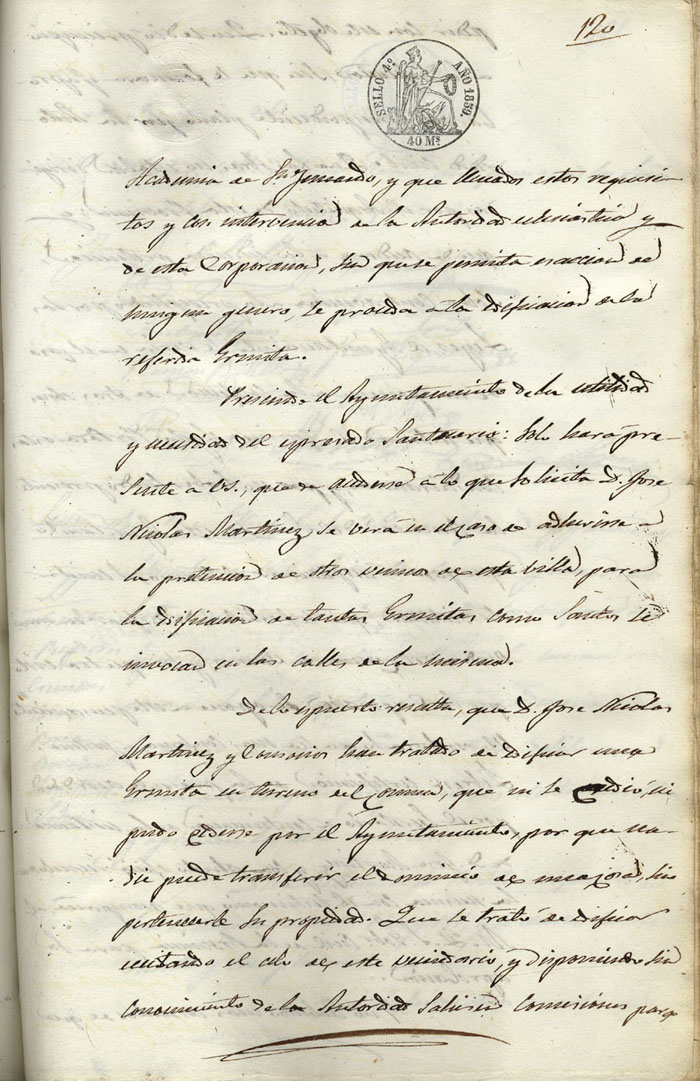 120
SELLO 4º AÑO 1859.
40 Ms
Academia de Sn Fernando, y que llenados estos requisi-
tos y con intervencion de la Autoridad eclesiástica y
de esta Corporacion, sin que se permita esaccion de
ningun genero, se proceda á la edificacion de la
referida Ermita.
Presinde el Ayuntamiento de la utilidad
y necesidad del espresado Santuario: Solo hará pre-
sente á VS., que de accederse á lo que solicita D. Jose
Nicolas Martinez se verá en el caso de adherirse á
la pretencion de otros vecinos de esta villa para
la edificacion de tantas Ermitas como Santos se
invocan en las calles de la misma.
De lo espuesto resulta, que D. Jose Nicolas
Martinez y Consocios han tratado de edificar una
Ermita en terreno del Comun, que ni se cedió, ni
pudo cederse por el Ayuntamiento, por que na-
die puede transferir el dominio de una cosa, sin
pertenecerle su propiedad. Que se trató de edificar
escitando el celo de este vecindario, y disponiendo sin
conocimiento de la Autoridad salieran comisiones para